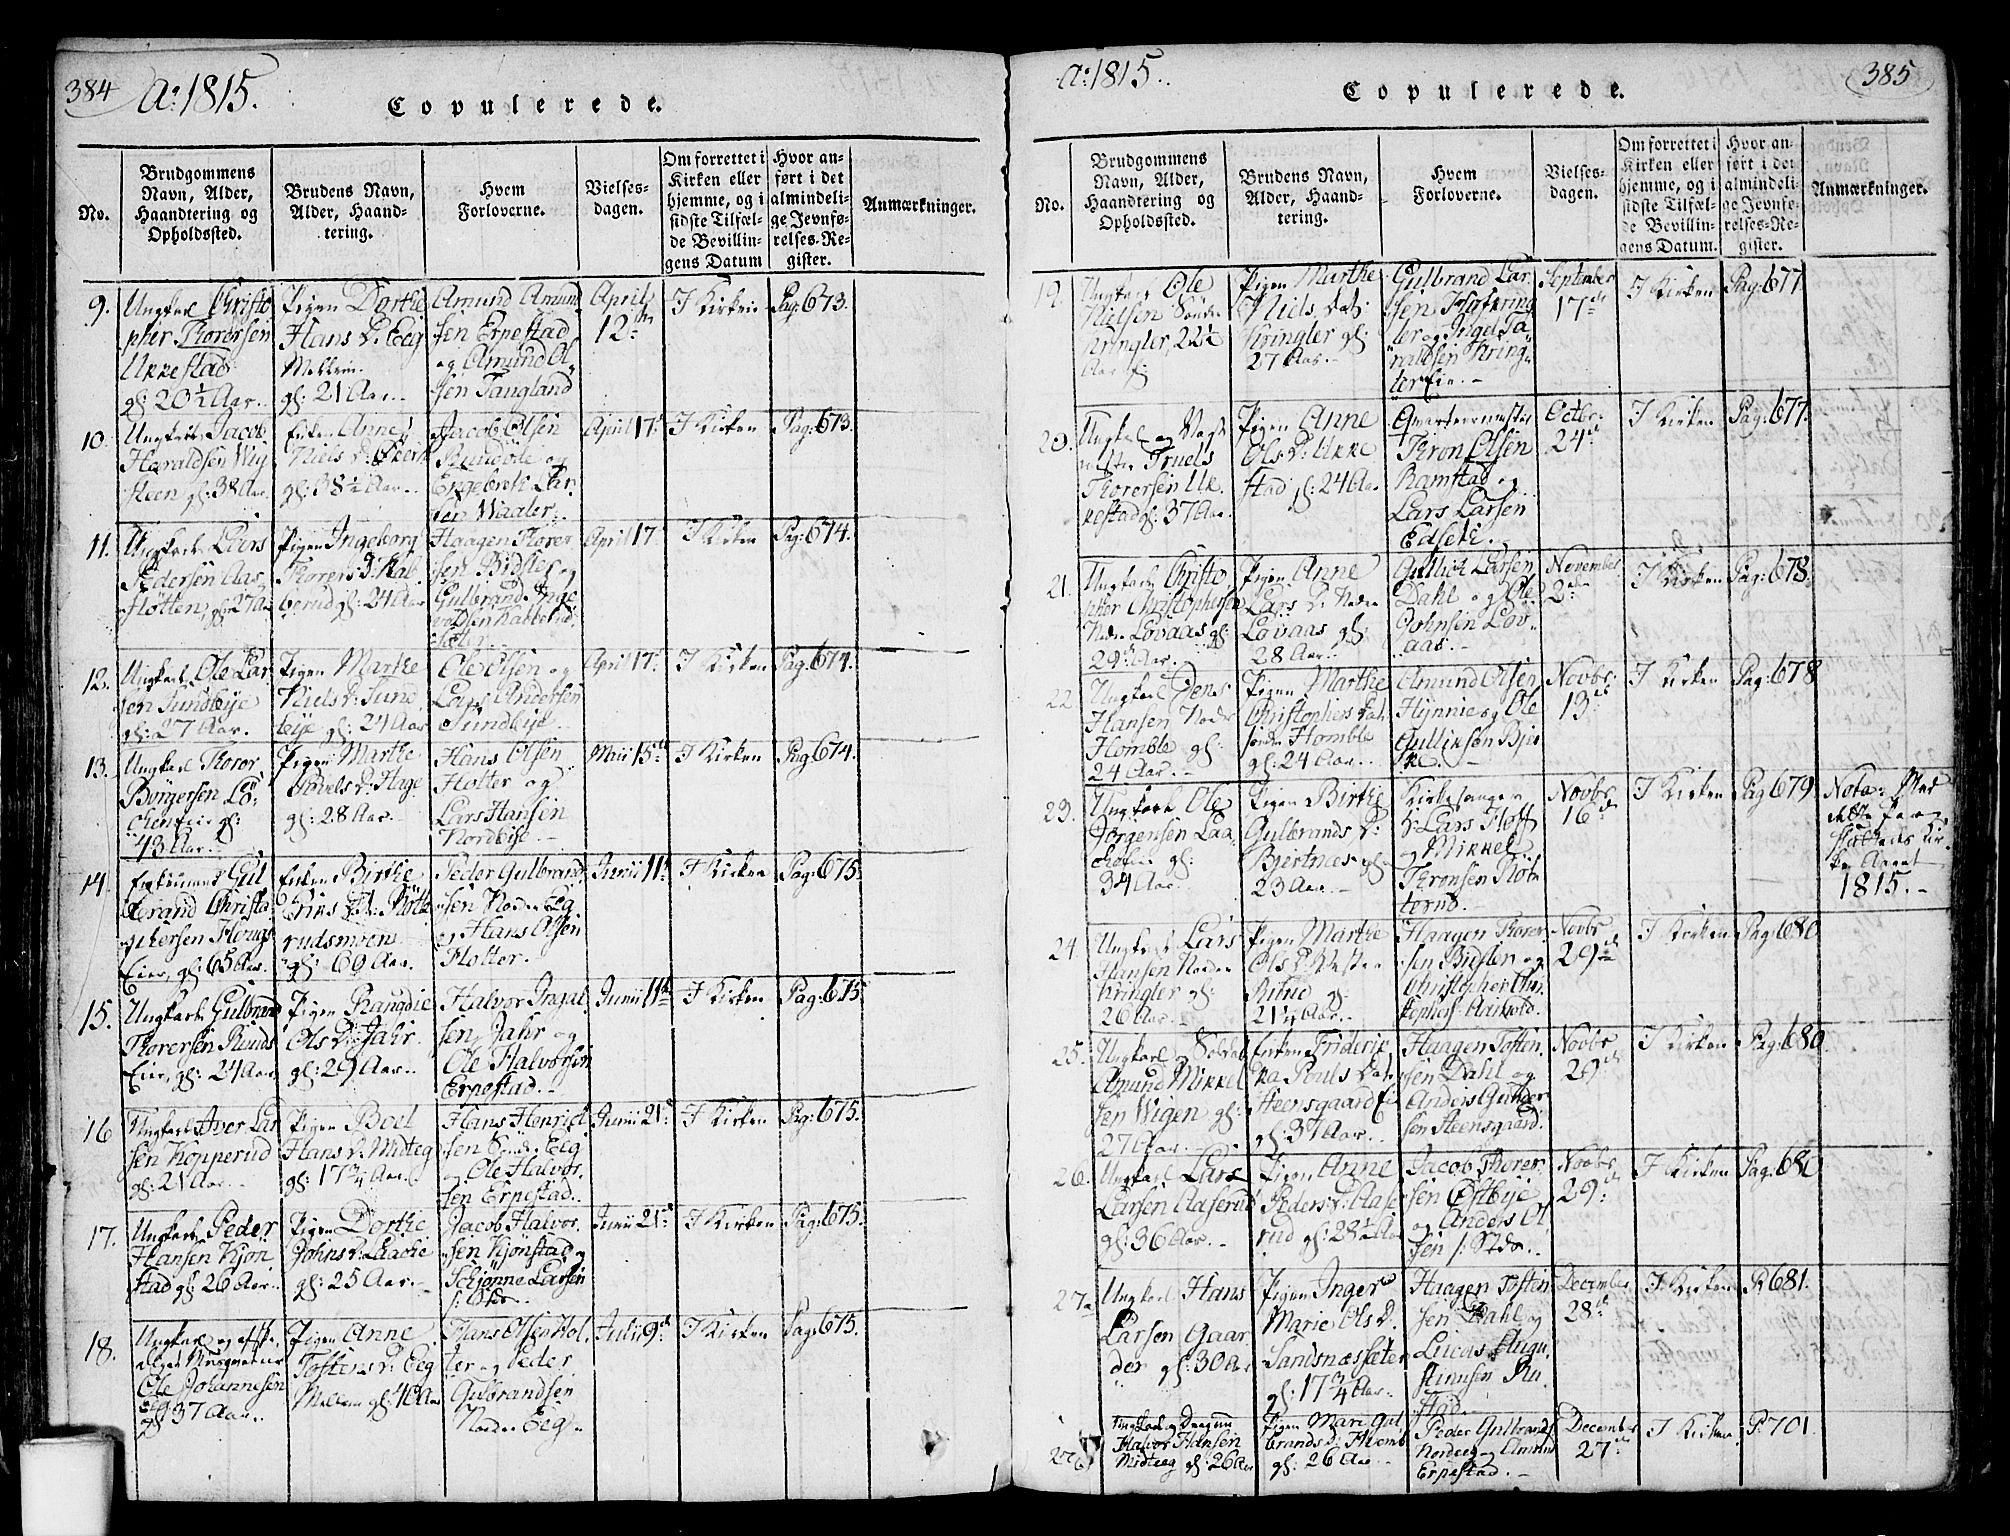 384
Ao 1815.
Copulerede.
No.
Brudgommens
Navn, Alder,
Haandtering og
Opholdssted.
Brudens Navn,
Alder, Haand-
tering.
Hvem
Forloverne.
Vielses-
dagen.
Om forrettet i
Kirken eller
hjemme, og i
sidste Tilfæl-
de Bevillin-
gens Datum
Hvor an-
ført i det
almindeli-
ge Jevnfø-
relses-Re-
gister.
Anmærkninger.
9.
Ungkarl Christo
pher Thorersen
Ukkestad
gl: 20½ Aar.
Pigen Dorthe
Hans D. Eeg
Mellem
gl: 21 Aar.
Amund Amund
sen Erpestad
og Amund Ol
sen Taugland
April
12te
I Kirken
Pag: 673.
10.
Ungkarl Jacob
Haraldsen
steen gl: 38 Aar
Enken Anne
Niels D:
gl: 38½ Aar.
Jacob Olsen
og
Engebreth Lar
sen Waaler.
April 17.
I Kirken
Pag: 673.
11.
Ungkarl Lars
Pedersen Aas
fløtten, gl: 27 Aar
Pigen Ingeborg
Thorers D. Kab
berud gl: 24 Aar
Haagen Thorer
sen Bidsler og
Gulbrand Inge
voldsen Kabberud
sæter.
April 17
I Kirken
Pag: 674.
12.
Ungkarl Ole Lar
sen Sundbye
gl: 27 Aar.
Pigen Marthe
Niels D: Sund
bye gl: 24 Aar
Ole Olsen og
Lars Andersen
Sundbye.
April 17.
I Kirken
Pag: 674.
13.
Ungkarl Thoror
Børgersen Lö
gl:
43 Aar.
Pigen Marthe
D: Hage
gl: 28 Aar.
Hans Olsen
Holter og
Lars Hansen
Nordbye.
Maii 15de
I Kirken
Pag 674.
14.
Enkemand Gul
brand Christo
phersen Houg
Eier, gl: 65 Aar.
Enken Birthe
Erics Dat:
rudsmoen
gl: 69 Aar.
Peder Gulbrand
sen Nordre Eg
og Hans Olsen
Holter.
Junii 11te
I Kirken
Pag: 675.
15.
Ungkarl Gulbrand
Thorersen Runds
Eier, gl: 24 Aar
Pigen Rangdie
Ols D: Jahr
gl: 29 Aar.
Halvor Ingal
sen Jahr og
Ole Halvorsen
Erpestad.
Junii 11te
I Kirken
Pag: 675
16
Ungkarl Iver Lar
sen Kopperud
gl: 21 Aar.
Pigen Boel
Hans D. Midteg
gl: 17¾ Aar.
Hans Henrich
sen Søndre Eeg
og Ole Halvor
sen Erpestad.
Junii 21.
I Kirken
Pag: 675.
17.
Ungkarl Peder
Hansen Kjøn
stad gl: 26 Aar.
Pigen Dorthe
Johns D:
gl: 25 Aar.
Jacob Halvor
sen Kjønstad og
Larsen
Junii 21.
I Kirken
Pag: 675.
18.
Ungkarl og afske
diget Musqueteer
Ole Johannesen
Eeg
gl: 37 Aar.
Pigen Anne
Tostens D. Eeg
Mellem gl: 40 Aar
Hans Olsen Hol
ter og Peder
Gulbrandsen
Nordre Eeg.
Julii 9de
I Kirken
Pag: 675.
Ao 1815.
Copulerede.
385
No.
Brudgommens
Navn, Alder,
Haandtering og
Opholdssted.
Brudens Navn,
Alder, Haand-
tering.
Hvem
Forloverne.
Vielses-
dagen.
Om forrettet i
Kirken eller
hjemme, og i
sidste Tilfæl-
de Bevillin-
gens Datum.
Hvor an-
ført i det
almindeli-
ge Jevnfø-
relses-Re-
gister.
Anmærkninger.
19.
Ungkarl Ole
Nielsen Søndre
Kringler, 22½
Aar gl.
Pigen Marthe
Niels Dat:
Kringler gl:
27 Aar.
Gulbrand Lar
sen
og Inge Ta
raldsen Kring
ler Eie.
September
17de
I Kirken
Pag: 677
20.
Ungkarl og
Truels
Thorersen Uk
kestad gl: 37 Aar.
Pigen Anne
Ols D: Ukke
stad gl: 24 Aar
Qvarteermester
Thron Olsen
Ramstad og
Lars Larsen
Edseth.
Octbr:
24de
I Kirken
Pag: 677.
21.
Ungkarl Christo
pher Christophersen
Nedre Lovaas gl:
29 Aar.
Pigen Anne
Lars D: Nedre
Lovaas gl:
28 Aar.
Gullich Larsen
Dahl og Ole
Johnsen Lov
aas.
November
2den
I Kirken
Pag: 678.
22.
Ungkarl Jens
Hansen Nordre
Homble gl:
24 Aar.
Pigen Marthe
Christophers Dat
søndre Homble
gl: 24 Aar.
Amund Olsen
Hynnie og Ole
Gulliksen Bjer
ke.
Novbr.
13de
I Kirken
Pag: 678
23.
Ungkarl Ole
Jørgensen Laa
gl:
34 Aar.
Pigen Birthe
Gulbrands D:
Bjertnes gl:
23 Aar.
Kirkesanger
Hr Lars Hoff
og Mikkel
Thronsen Røb
ternd.
Novbr.
16de
I Kirken
Pag 679
Nota: Med
dette Par
sluttedes Kir
ke Aaret
1815.
24.
Ungkarl Lars
Hansen Nordre
Kringler gl:
26 Aar.
Pigen Marthe
Ols D. Vestre
Rud gl:
21¼ Aar.
Haagen Thorer
sen Bidslen og
Christopher Chri
stophers:
Novbr
29de
I Kirken
Pag: 680
25.
Ungkarl og Soldat
Amund Mikkel
sen Wigen gl:
27 Aar.
Enken Friderie
ka Pouls Dat
Steensgaard Ei
gl: 37 Aar.
Haagen Tosten
sen Dahl og
Anders Gunder
sen Steensgaard.
Novbr
29de
I Kirken
Pag: 680.
26.
Ungkarl Lars
Larsen Aaserud
gl: 36 Aar.
Pigen Anne
Peders D: Aase
rud gl: 28½ Aar
Jacob Thorer
sen Østbye
og Anders Ol
sen
Novbr
29de
I Kirken
Pag: 681
27.
Ungkarl Hans
Larsen Gaar
der gl: 30 Aar
Pigen Inger
Marie Ols D.
Sandsnessæter
gl: 17¾ Aar.
Haagen Tosten
sen Dahl og
Lucas Augu
stinusen Ru
stad.
December
28de
I Kirken
P. 681.
Ungkarl og Dragon
Halvor Hansen
Midteeg gl: 26 Aar
Pigen Mari Gul
brands D:
gl: 26 Aar
Peder Gulbrands
Nordeeg og Amund
Erpestad.
December
27de
I Kirken
P. 701.